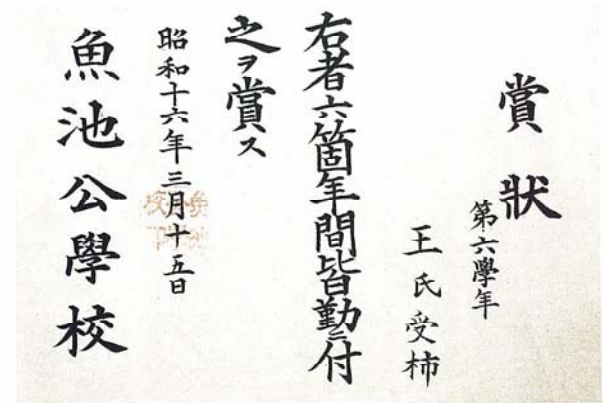 賞狀
第六學年
王氏受柿
右者六箇年間皆勤ニ付
之ヲ賞ス
昭和十六年三月十五日
魚池公學校